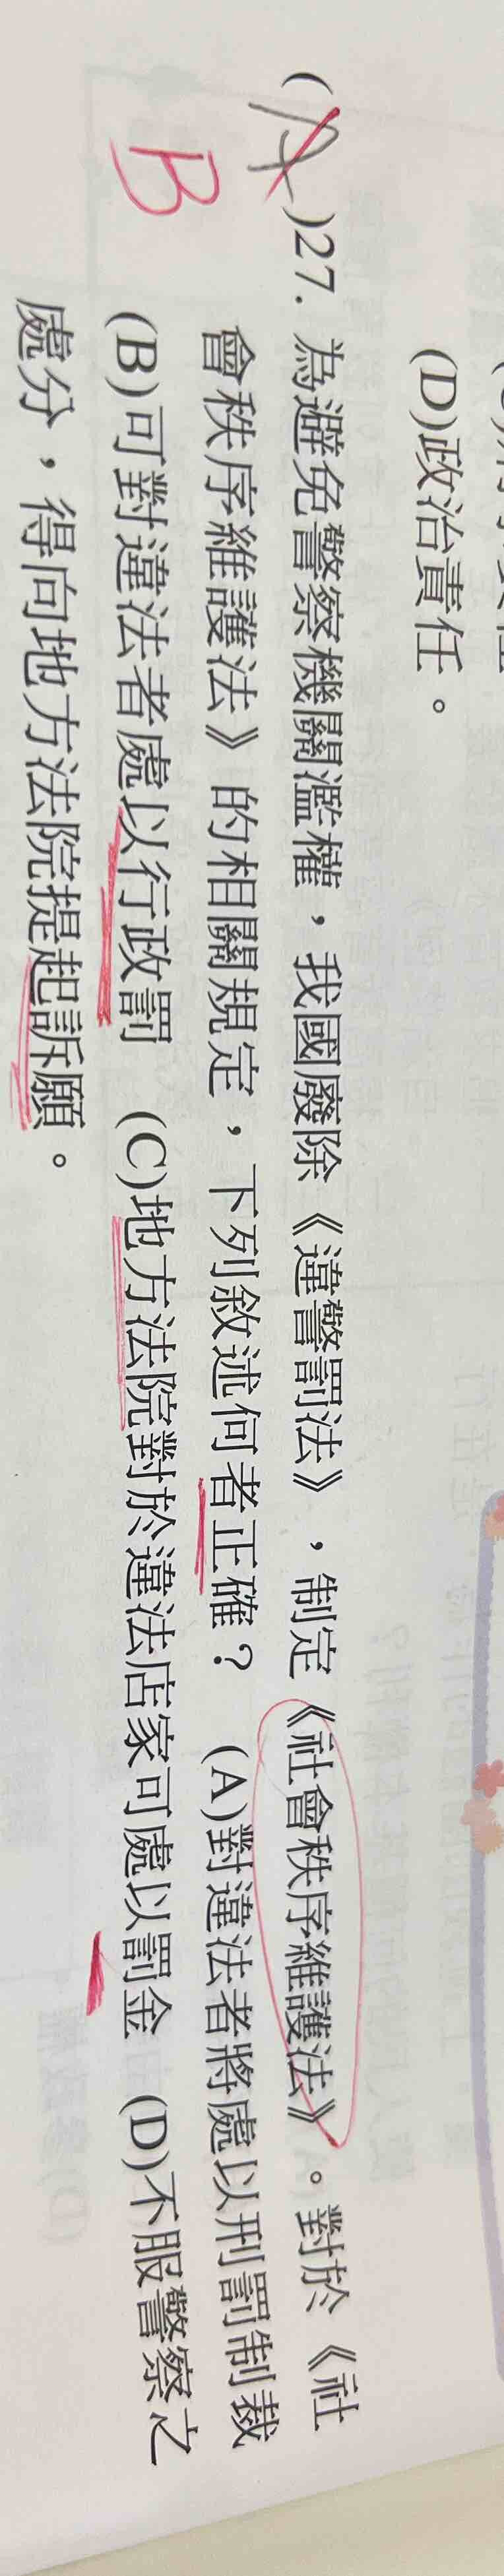 (D)政治責任。
(A)27. 為避免警察機關濫權，我國廢除《違警罰法》，制定《社會秩序維護法》。對於《社
會秩序維護法》的相關規定，下列敘述何者正確？ (A)對違法者將處以刑罰制裁
B
(B)可對違法者處以行政罰 (C)地方法院對於違法店家可處以罰金 (D)不服警察之
處分，得向地方法院提起訴願。